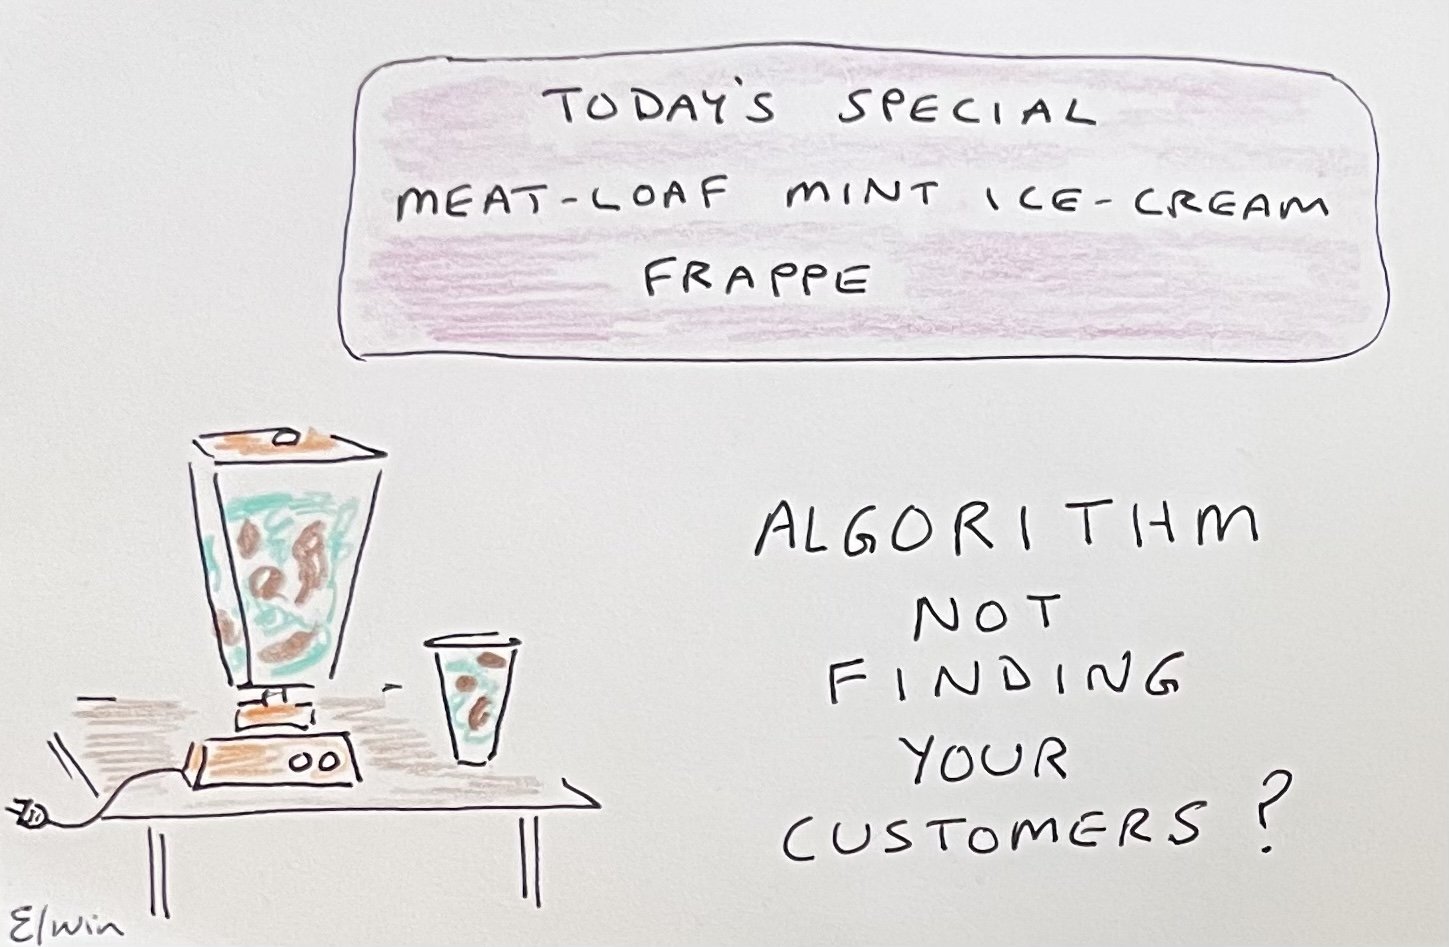 TODAY'S SPECIAL
MEAT-LOAF MINT ICE-CREAM
FRAPPE
ALGORITHM
NOT
FINDING
YOUR
CUSTOMERS?
Elwin